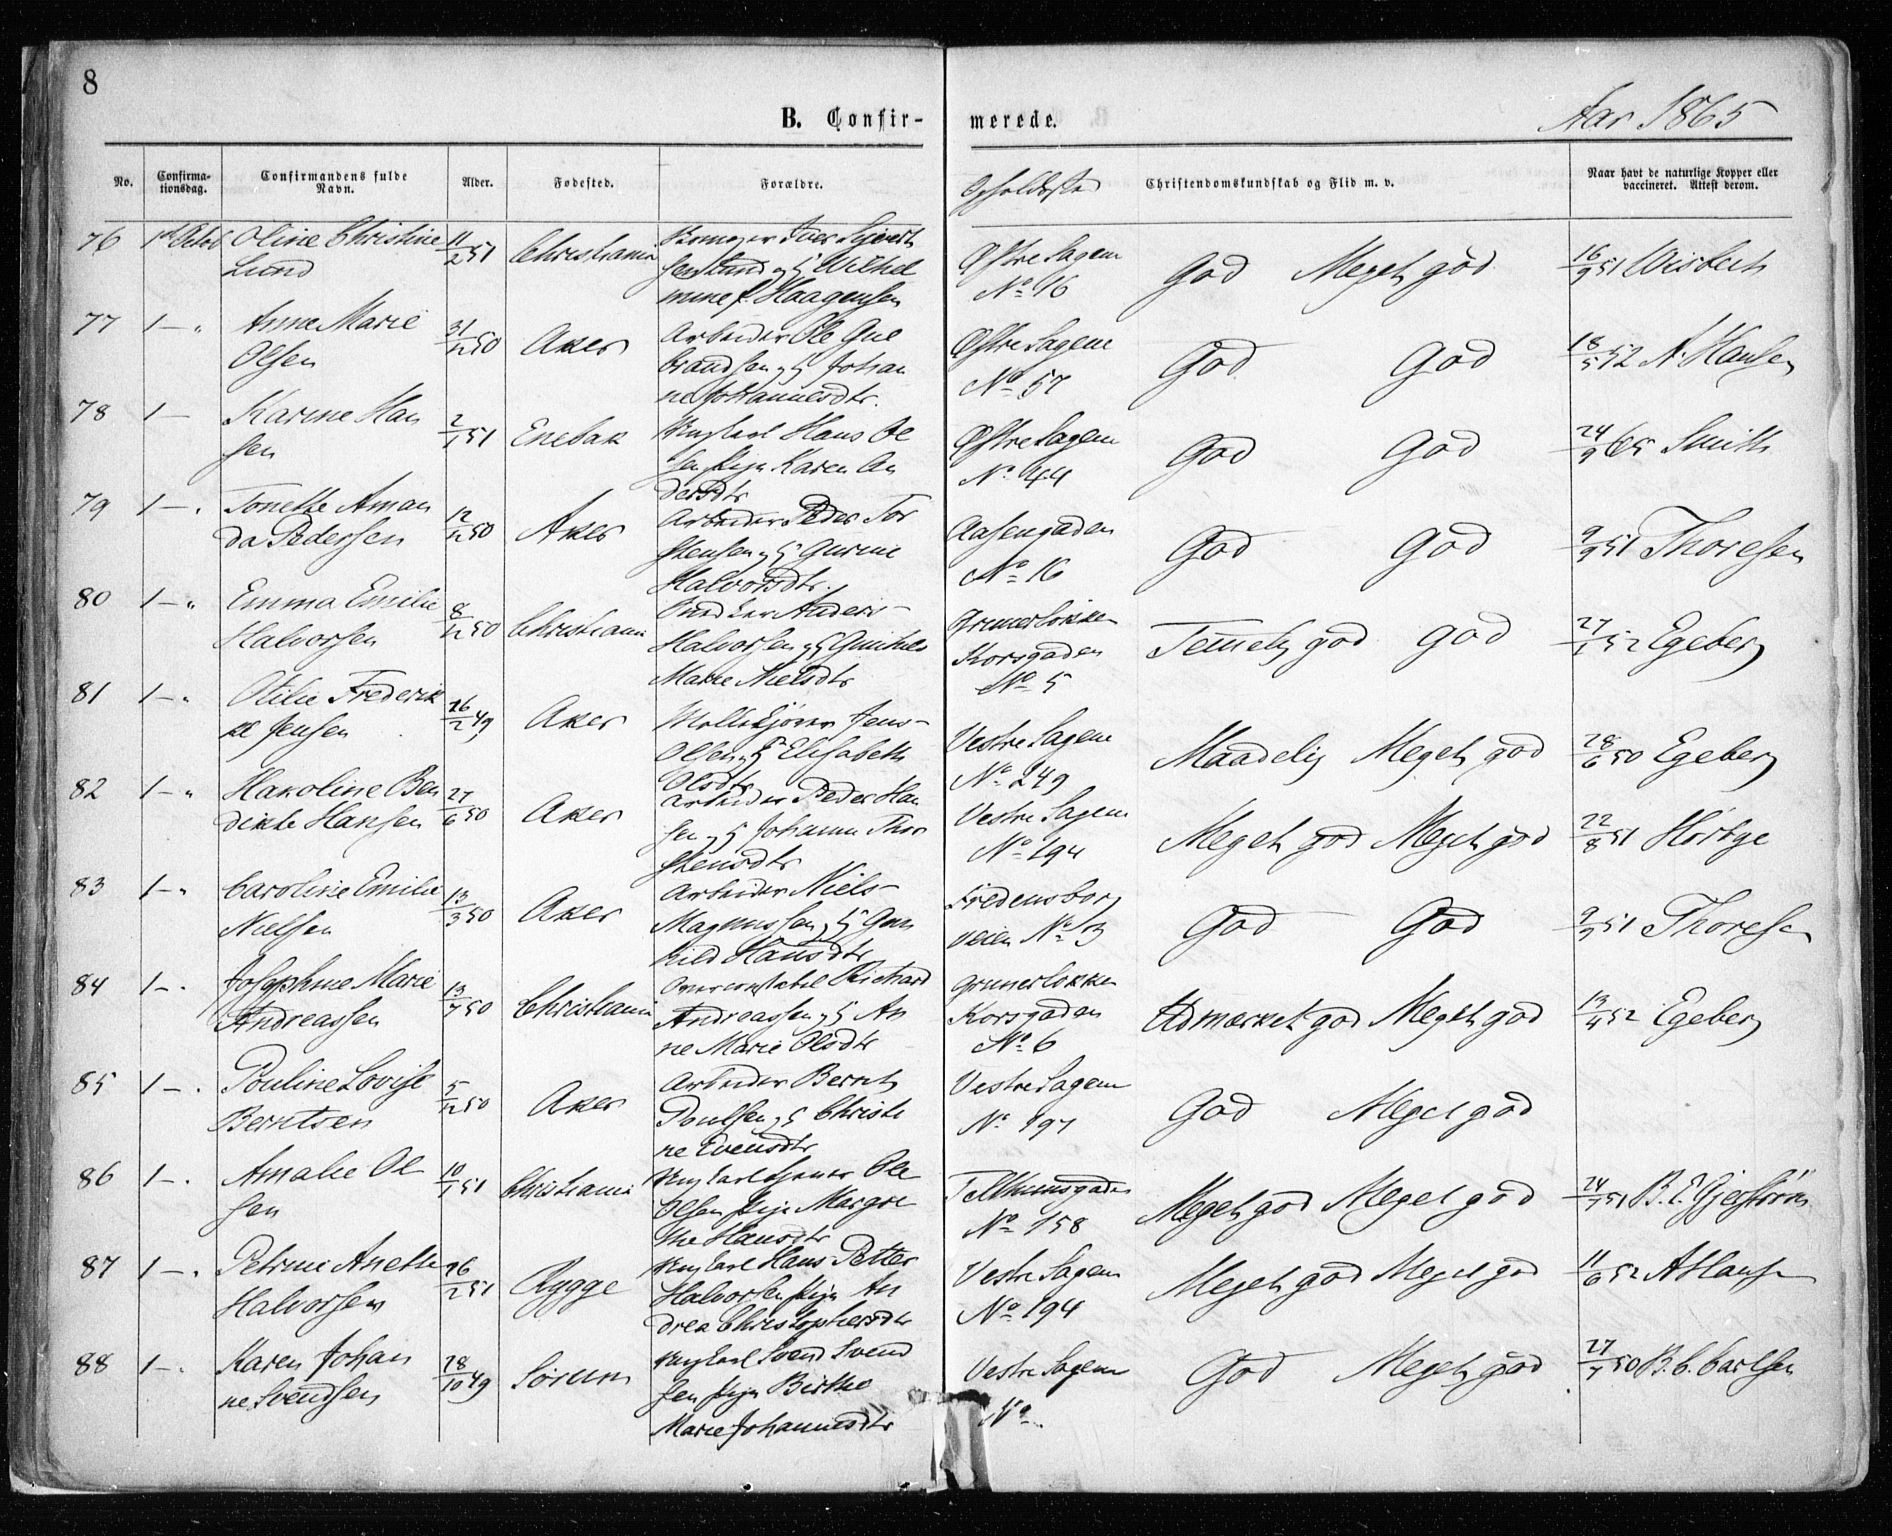 8
B. Confir-
merede.
Aar 1865
No.
Confirma-
tionsdag.
Confirmandens fulde
Navn.
Alder.
Fødested.
Forældre.
Opholdssted
Christendomskundskab og Flid m. v.
Naar havt de naturlige Kopper eller
vaccineret. Attest derom.
76 1st Octob Oline Christine 11/2 51 Christiania Iver Sjverth
Lund sen Lund og H Wilhel
mine f. Haagensen
Østre Sagene
No 16
God Meget god 16/9 51 Wisbech
77 1 — " Anne Marie 31/12 50 Aker Arbeider Ole Gul
Olsen brandsen og H Johan
ne Johannesdtr.
Østre Sagene
No 57
God God 18/5 52 A. Hansen
78 1 — Karine Han 2/1 51 Enebak Ungkarl Hans Ol
sen sen Pige Karen An
dersdtr
Østre Sagene
No. 44
God God 24/9 65 Smith
79 1 — . Tonette Aman 12/12 50 Aker Arbeider Peder Tor
da Pedersen stensen og H Gurine
Halvorsdtr.
Aasengaden
No 16
God God 9/9 51 Thoresen
80 1 — " Emma Emilie 8/12 50 Christiania Anders
Halvorsen Halvorsen og H Gunhild
Marie Nielsdtr
Grünerløkken
Korsgaden
No 5
Temelig god God 27/1 52 Egeberg
81 1 — " Otilie Frederik 26/2 49 Aker Jens
ke Jensen Olsen og H Elisabeth
Olsdtr
Vestre Sagene
No 249
Maadelig Meget god 28/6 50 Egeberg
82 1 — " Haroline Ben 27/6 50 Aker Arbeider Peder Han
dikte Hansen sen og H Johanne Thor
stensdtr
Vestre Sagene
No 194
Meget god Meget god 22/8 51 Hørbye
83 1 — " Caroline Emilie 13/3 50 Aker Arbeider Niels
Nielsen Magnussen og H Gun
hild Hansdtr
Fredensborg
veien No 13
God God 9/9 51 Thoresen
84 1 — . Josephine Marie 13/7 50 Christiania Overconstabel Richard
Andreassen Andreassen og H An
ne Marie Olsdtr
Grünerløkken
Korsgaden
No 6
Udmærket god Meget god 13/4 52 Egeberg
85 1 — . Pouline Lovise 5/12 50 Aker Arbeider Bernt
Berntsen Poulsen og H Christi
ne Evensdtr
Vestre Sagene
No 197
God Meget god
86 1 — . Amalie Ol 10/1 51 Christiania Ungkarl Ole
sen Olsen Pige Margre
the Hansdtr
Telthusgaden
No 158
Meget god Meget god 24/7 51
87 1 — . Petrine Anette 26/2 51 Rygge Ungkarl Hans Petter
Halvorsen Halvorsen Pige An
drea Christophersdtr
Vestre Sagene
No 194
Meget god Meget god 11/6 52 A Hansen
88 1 — . Karen Johan 28/10 49 Sørum Ungkarl Svend Svend
ne Svendsen sen Pige Birthe
Marie Johannesdtr
Vestre Sagene
No
God Meget god 27/7 50 B. C. Carlsen